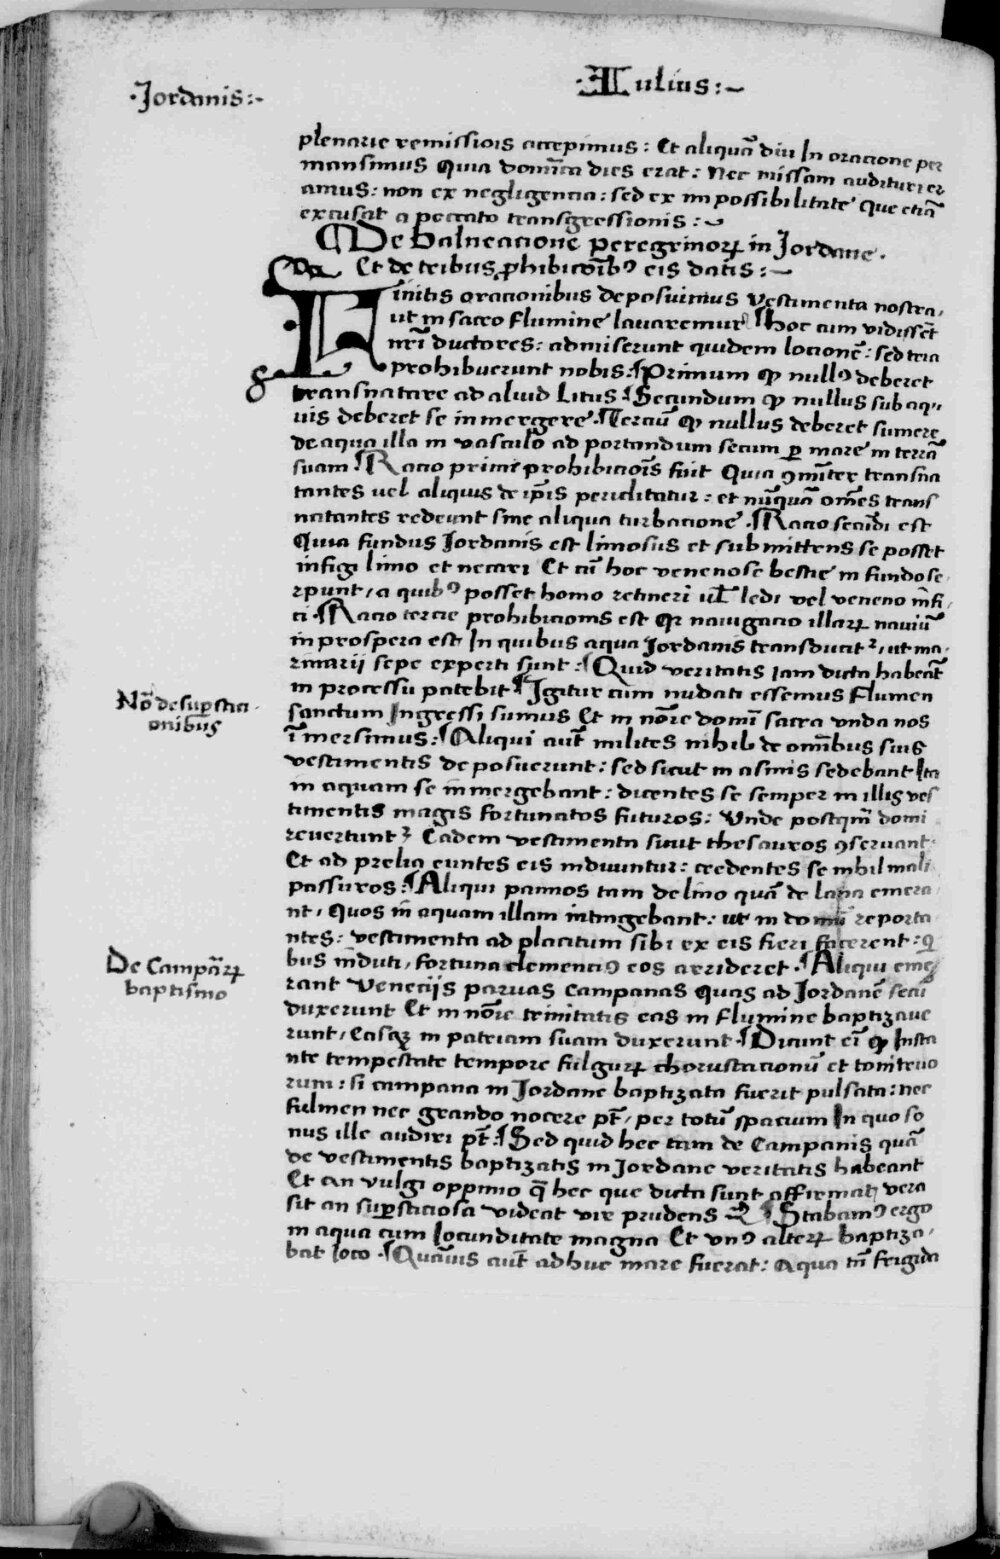 ·Jordanis:~
·Iulius:~
plenarie remissiois accepimus: Et aliquā diu In oracione per
mansimus Quia domīca dies erat: Nec missam audituri er
amus: non ex negligencia: sed ex impossibilitate que etiā
excusat a peccato transgressionis:~
De balneacione peregrinorꝝ in Jordane.
Et de tribus ꝓhibicōib⁹ eis datis:~
Finitis oracionibus deposuimus vestimenta nostra,
ut in sacro flumine lavaremur Hoc cum vidissēt
nrī ductores: admiserunt quidem locionē: sed tria
prohibuerunt nobis: Primum ꝙ null⁹ deberet
transnatare ad aliud Litus. Secundum ꝙ nullus sub aq,
uis deberet se inmergere. Terciū ꝙ nullus deberet sumere
de aqua illa in vasculo ad portandum secum ꝑ mare in terrā
suam. Racio prime prohibicioīs fuit Quia ꝯmūiter transna
tantes vel aliquis de ip̄is periclitatur: et nūquā om̄es trans
natantes redeunt sine aliqua turbacione. Racio secūdi est
Quia fundus Jordanis est limosus et submittens se posset
infigi limo et necari Et cū hoc venenose bestie in fundo se,
rpunt, a quib⁹ posset homo retineri ul̄ ledi vel veneno īnfi,
ci. Racio tercie prohibicionis est qꝛ navigacio illarꝝ naviū
in prospera est In quibus aqua Jordanis transducit᷑, ut ma,
rinarii sepe experti sunt: Quid veritatis iam dicta habeāt
in processu patebit Igitur cum nudati essemus Flumen
sanctum Ingressi sumus Et in nōie domī sacra unda nos
īmersimus: Aliqui aut̄ milites nihil de om̄ibus suis
vestimentis deposuerunt: sed sicut in asinis sedebant Ita
in aquam se inmergebant: dicentes se semper in illis ves
timentis magis fortunatos futuros: Unde postqm̄ domi
revertunt᷑ Eadem vestimenta sicut thesauros ꝯservant:
Et ad prelia euntes eis induuntur: credentes se nihil mali
passuros: Aliqui pannos tam de lino quā de lana emera,
nt, Quos in aquam illam intingebant: ut in domū reporta
ntes: vestimenta ad placitum sibi ex eis fieri facerent: q̄
bus īnduti, fortuna clementi⁹ eos arrideret. Aliqui emē
rant Veneciis parvas campanas quas ad Jordanē secū
duxerunt Et in nōie trinitatis eas in flumine baptizave
runt, Easqꝫ in patriam suam duxerunt. Dicunt eī ꝙ Insta
nte tempestate tempore fulgurꝝ choruscacionū et tonitruo
rum: si campana in Jordane baptizata fuerit pulsata: nec
fulmen nec grando nocere pt̄, per totū spacium In quo so
nus ille audiri pt̄. Sed quid hec tam de Campanis quā
de vestimentis baptizatis in Jordane veritatis habeant
Et an vulgi oppinio q̄ hec que dicta sunt affirmat vera
sit an suꝑsticiosa videat vir prudens Stabam⁹ ergo
in aqua cum Jocunditate magna Et vn⁹ alterꝝ baptiza,
bat Joco. Quāvis aut̄ ad huc mare fuerat: Aqua tn̄ frigida
Nō de suꝑstici
onibus
De Campāꝝ
baptismo